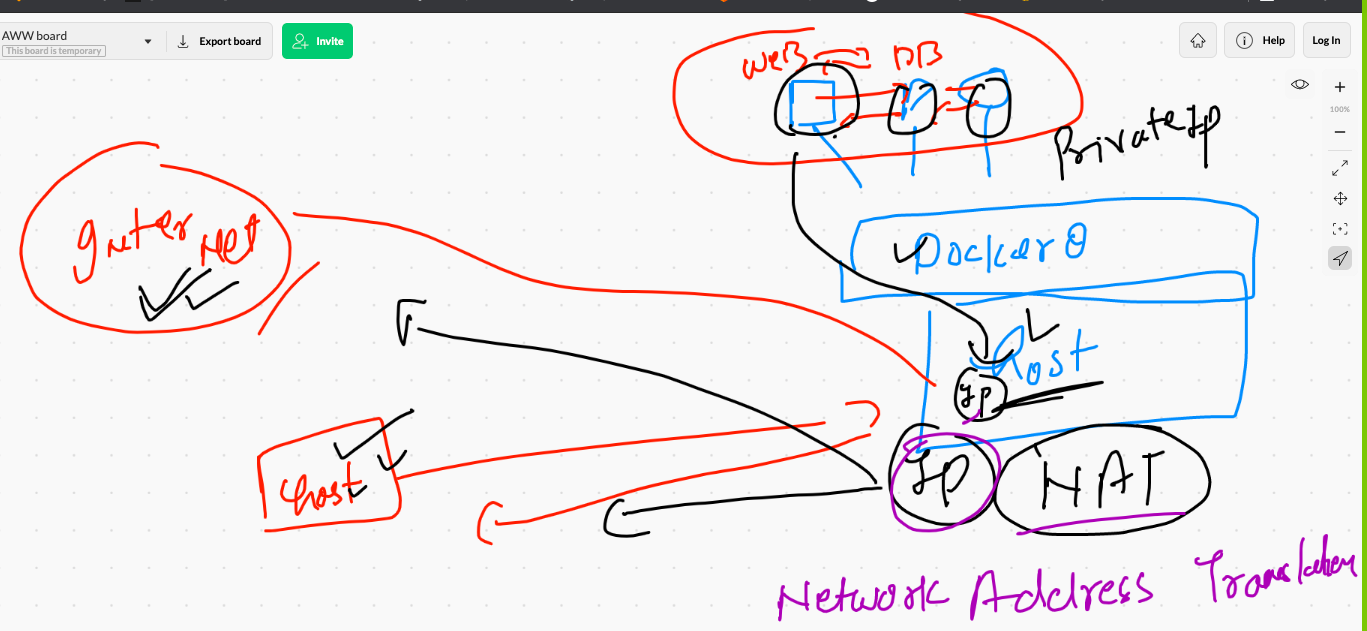 AWW board
This board is temporary
Export board
Invite
Help
Log In
100%
WEB DB
Private Ip
Internet
Docker 0
Host
Ip
host
Ip NAT
Network Address Translation